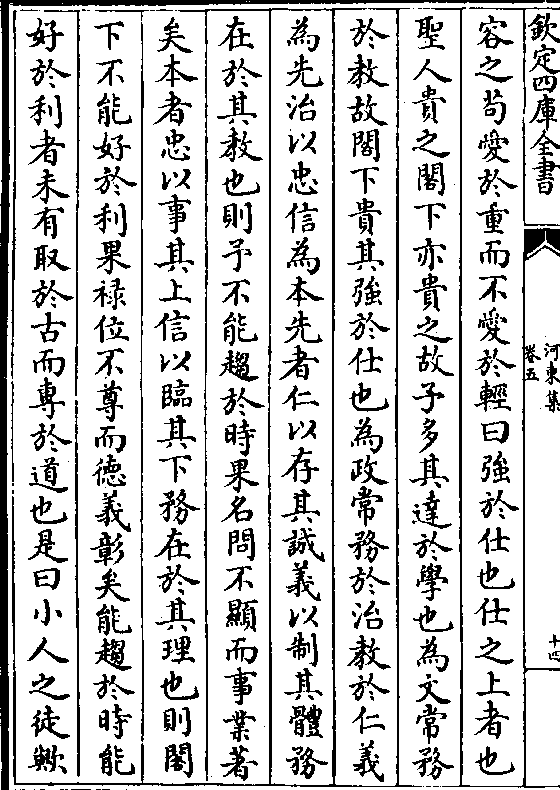 欽定四庫全書
河東集
卷五
十四
容之苟愛於重而不愛於輕曰強於仕也仕之上者也
聖人貴之閣下亦貴之故予多其達於學也為文常務
於教故閣下貴其強於仕也為政常務於治教於仁義
為先治以忠信為本先者仁以存其誠義以制其體務
在於其教也則予不能趨於時果名問不顯而事業著
矣本者忠以事其上信以臨其下務在於其理也則閣
下不能好於利果祿位不尊而德義彰矣能趨於時能
好於利者未有取於古而專於道也是曰小人之徒歟